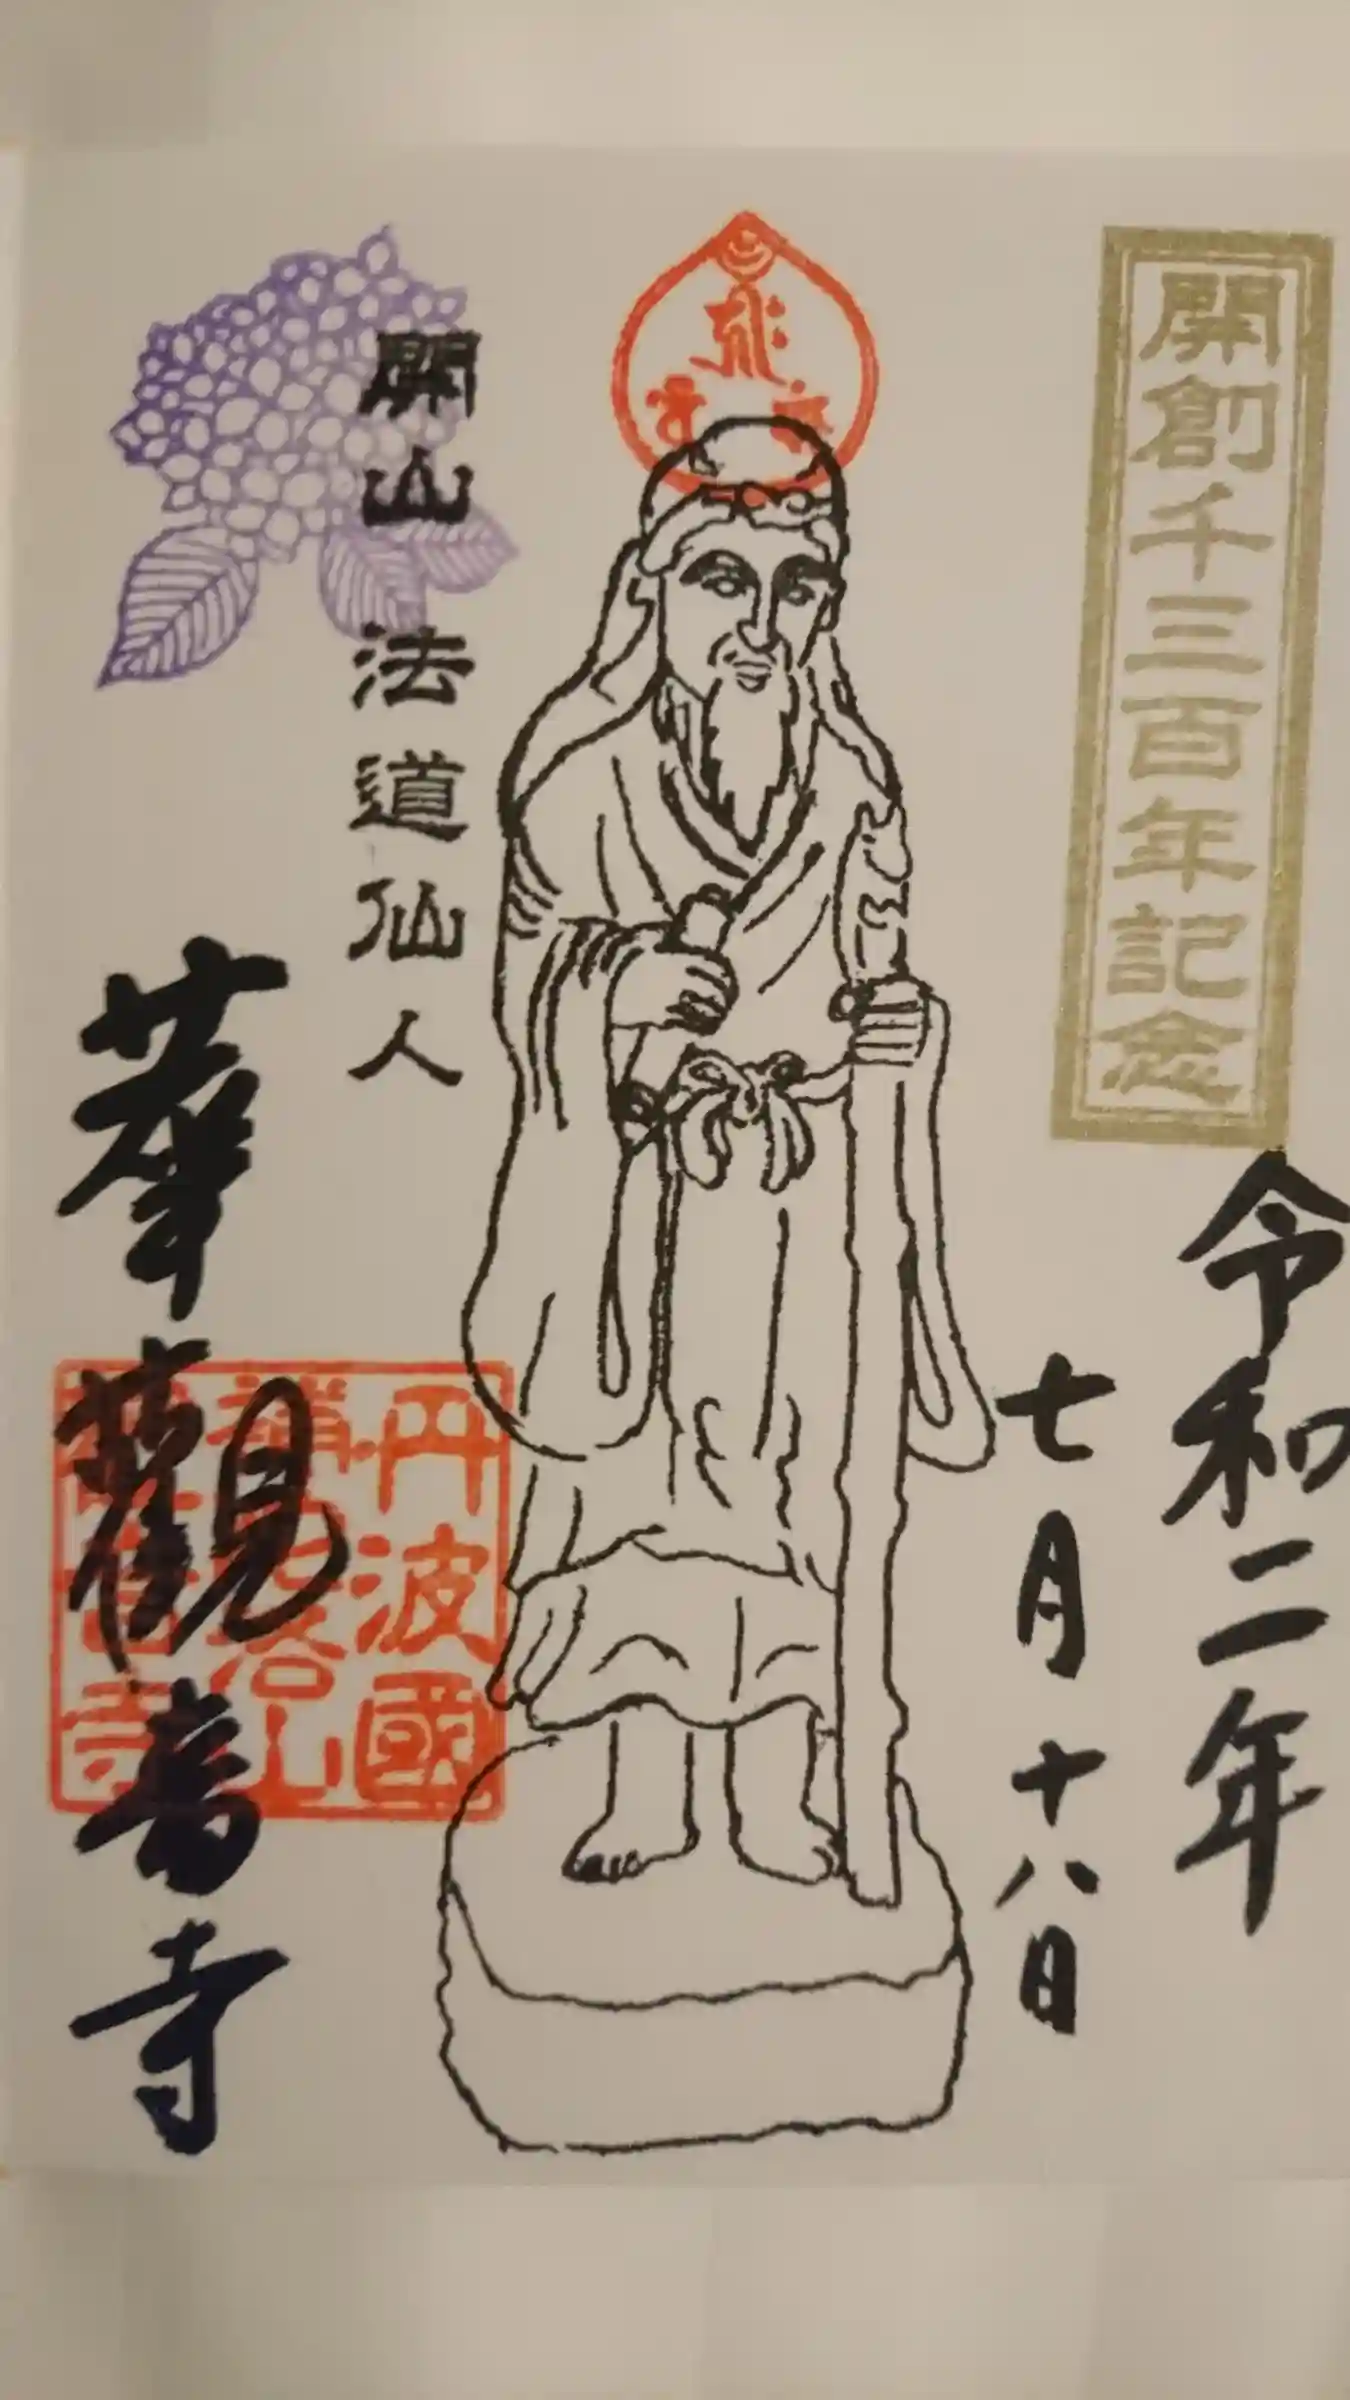 開創千三百年記念
令和二年
七月十八日
開山 法道仙人
華観音寺
丹波國
補陀洛山
観音寺